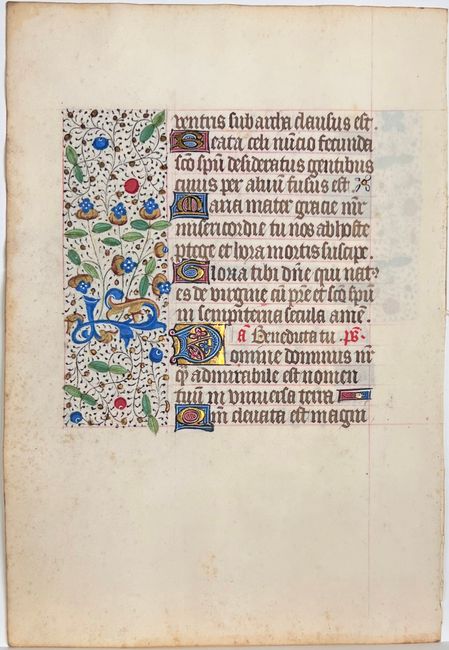 ventris sub archa clausus est.
Beata celi nũcio fecunda
sc̃o sp̃u desideratus gentibus
cuius per aluũ fusus est.
Maria mater gracie mr̃
misericordie tu nos ab hoste
ptege et hora mortis suscipe.
Gloria tibi dñe qui nat⁹
es de virgine cũ pr̃e et sc̃o sp̃u
in sempiterna secula amẽ.
añ Benedicta tu. ps̃.
Domine dominus nr̃
q̃ admirabile est nomen
tuũ in vniuersa terra
Qm̃ eleuata est magni